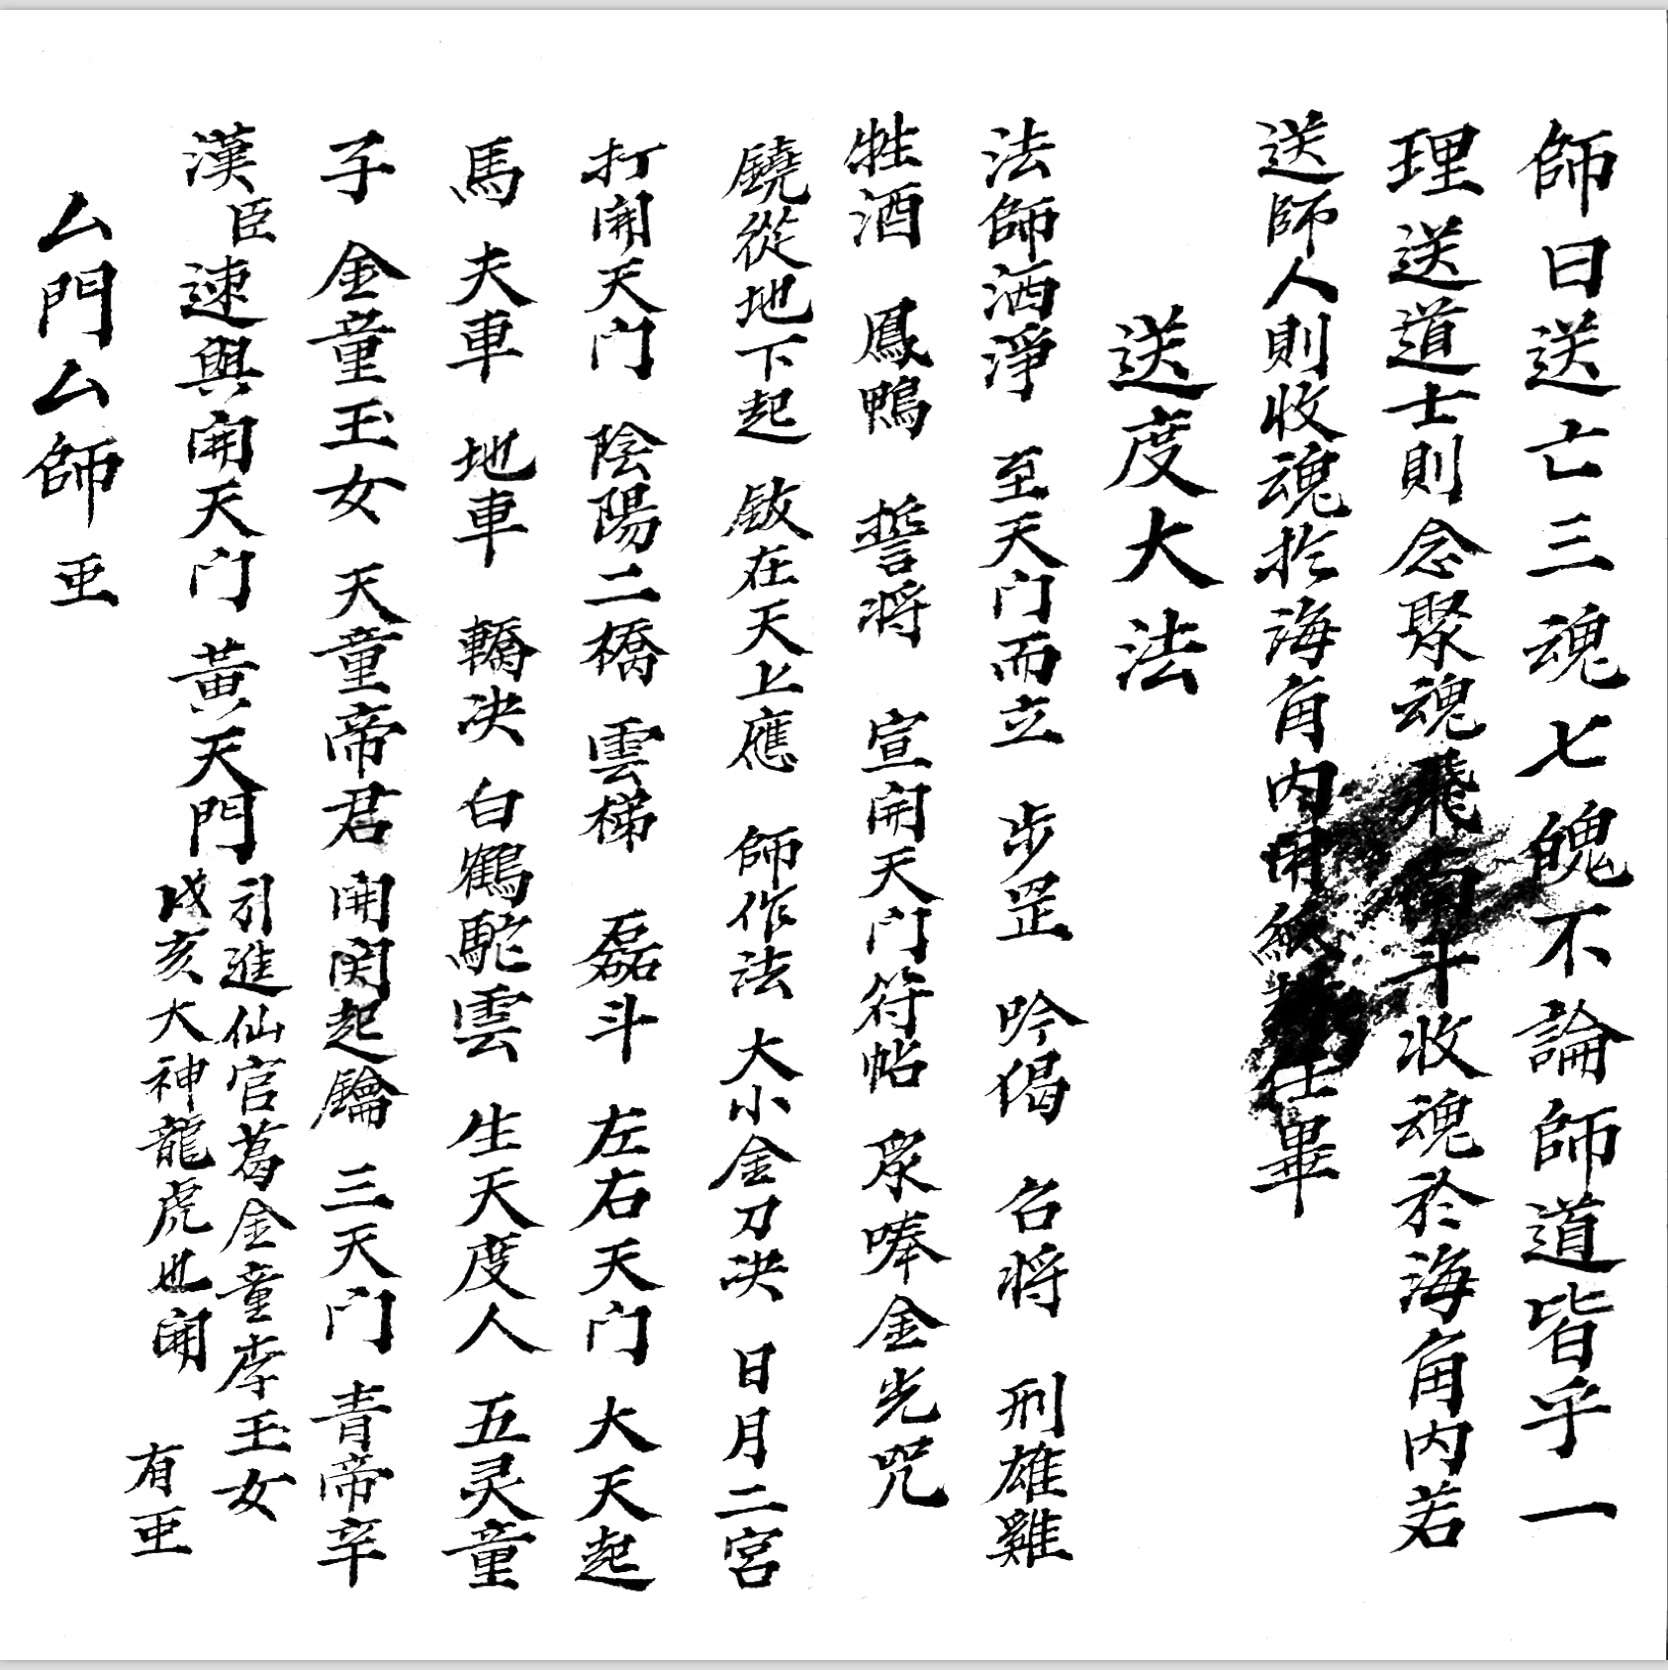 師曰送亡三魂七魄不論師道皆乎一
理送道士則念聚魂飛南斗收魂於海角內若
送師人則收魂於海角內用紙畢
送度大法
法師洒淨 至天门而立 步罡 吟偈 召将 刑雄雞
牲酒 鳳鴨 誓將 宣開天门符帖 眾唪金光咒
鐃從地下起 鈸在天上應 師作法 大小金刀决 日月二宮
打開天门 陰陽二橋 雲梯 磊斗 左右天门 大天起
馬 夫車 地車 轎决 白鶴駝雲 生天度人 五灵童
子 金童玉女 天童帝君 開関起鑰 三天门 青帝辛
漢臣速與開天门 黃天門 引進仙官葛金童李玉女
戌亥大神龍虎也開 有𠀾
厶門厶師 𠀾